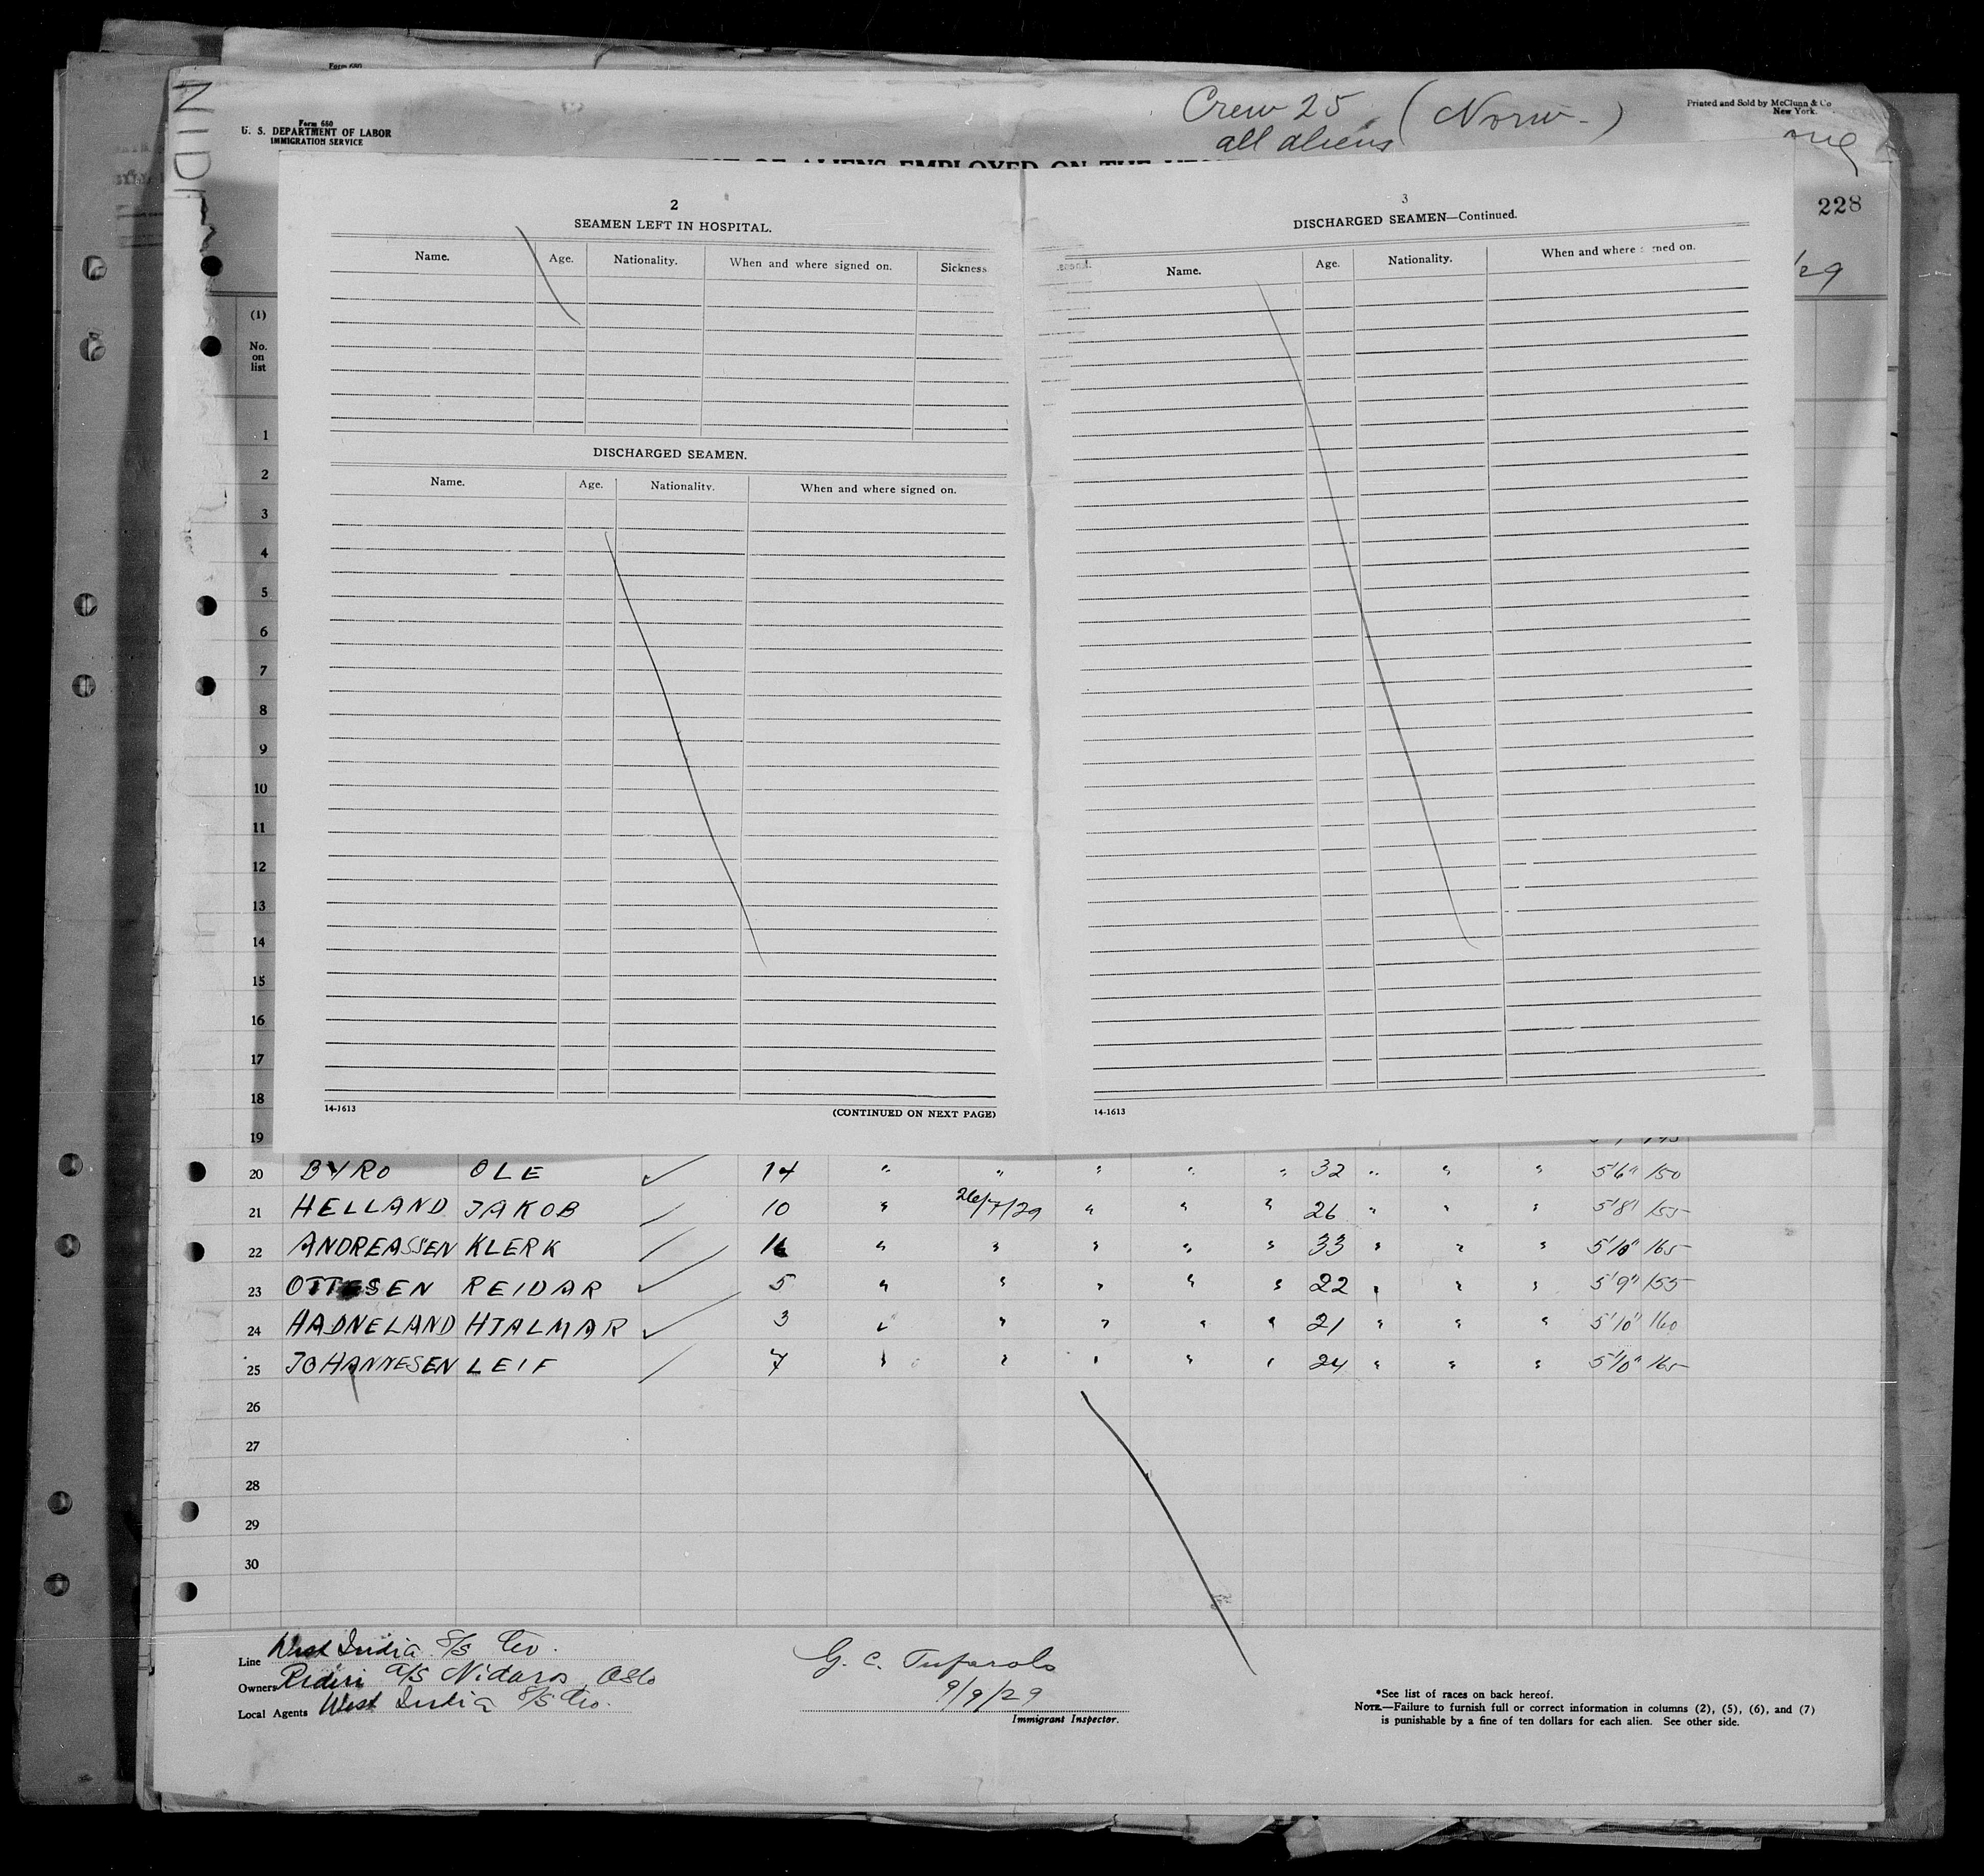 NID
Form 680
Form 680
U. S. DEPARTMENT OF LABOR
IMMIGRATION SERVICE
Crew 25 (Norw.)
all aliens
Printed and Sold by McClunn & Co
New York.
OF ALIENS EMPLOYED ON THE
228
/29
2
SEAMEN LEFT IN HOSPITAL.
Name. Age. Nationality. When and where signed on. Sickness
DISCHARGED SEAMEN.
Name. Age. Nationality. When and where signed on.
14-1613 (CONTINUED ON NEXT PAGE)
3
DISCHARGED SEAMEN—Continued.
Name. Age. Nationality. When and where ned on.
14-1613
(1)
No.
on
list
1
2
3
4
5
6
7
8
9
10
11
12
13
14
15
16
17
18
19
20 BYRO OLE ✓ 14 " " " " " 32 " " " 5'6" 150
21 HELLAND JAKOB / 10 " 26/7/29 " " " 26 " " " 5'8" 155
22 ANDREASSEN KLERK / 16 " " " " " 33 " " " 5'10" 165
23 OTTESEN REIDAR ✓ 5 " " " " " 22 " " " 5'9" 155
24 HADNELAND HJALMAR ✓ 3 " " " " " 21 " " " 5'10" 160
25 JOHANNESEN LEIF / 7 " " " " " 24 " " " 5'10" 165
26
27
28
29
30
Line West India S/S Co.
Owners Rederi A/S Nidaros, Oslo
Local Agents West India S/S Co.
G. C.
9/9/29
Immigrant Inspector.
*See list of races on back hereof.
NOTE.—Failure to furnish full or correct information in columns (2), (5), (6), and (7)
is punishable by a fine of ten dollars for each alien. See other side.